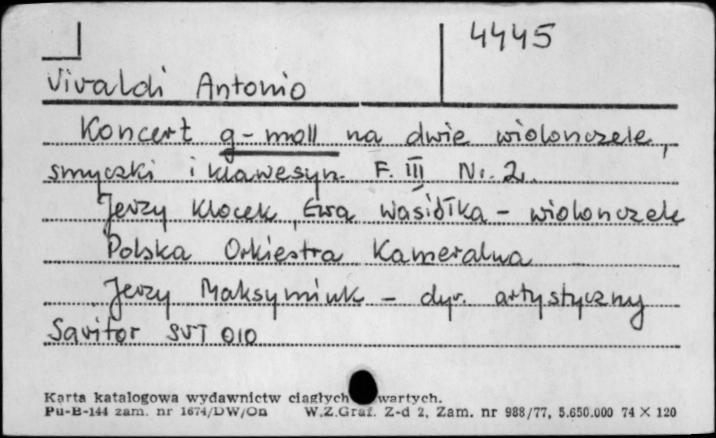 4445
Vivaldi Antonio
Koncert g-moll na dwie wiolonczele,
smyczki i klawesyn. F. III Nr. 2.
Jerzy Klocek, Ewa Wasiółka - wiolonczele
Polska Orkiestra Kameralna
Jerzy Maksymiuk - dyr. artystyczny
Savitor SVT 010
Karta katalogowa wydawnictw ciągłych wartych.
Pu-B-144 zam. nr 1674/DW/On W.Z.Graf. Z-d 2, Zam. nr 988/77, 5.650.000 74 × 120